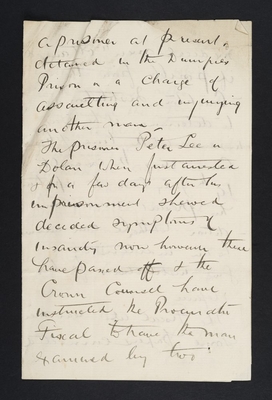 a prisoner at present
detained in the Dumfries
Prison on a Charge of
assaulting and injuring
another man.
The prisoner Peter Lee or
Dolan when first arrested
& for a few days after his
imprisonment shewed
decided symptoms of
insanity now however these
have passed off & the
Crown Counsel have
instructed the Procurator
Fiscal to have the man
examined by two